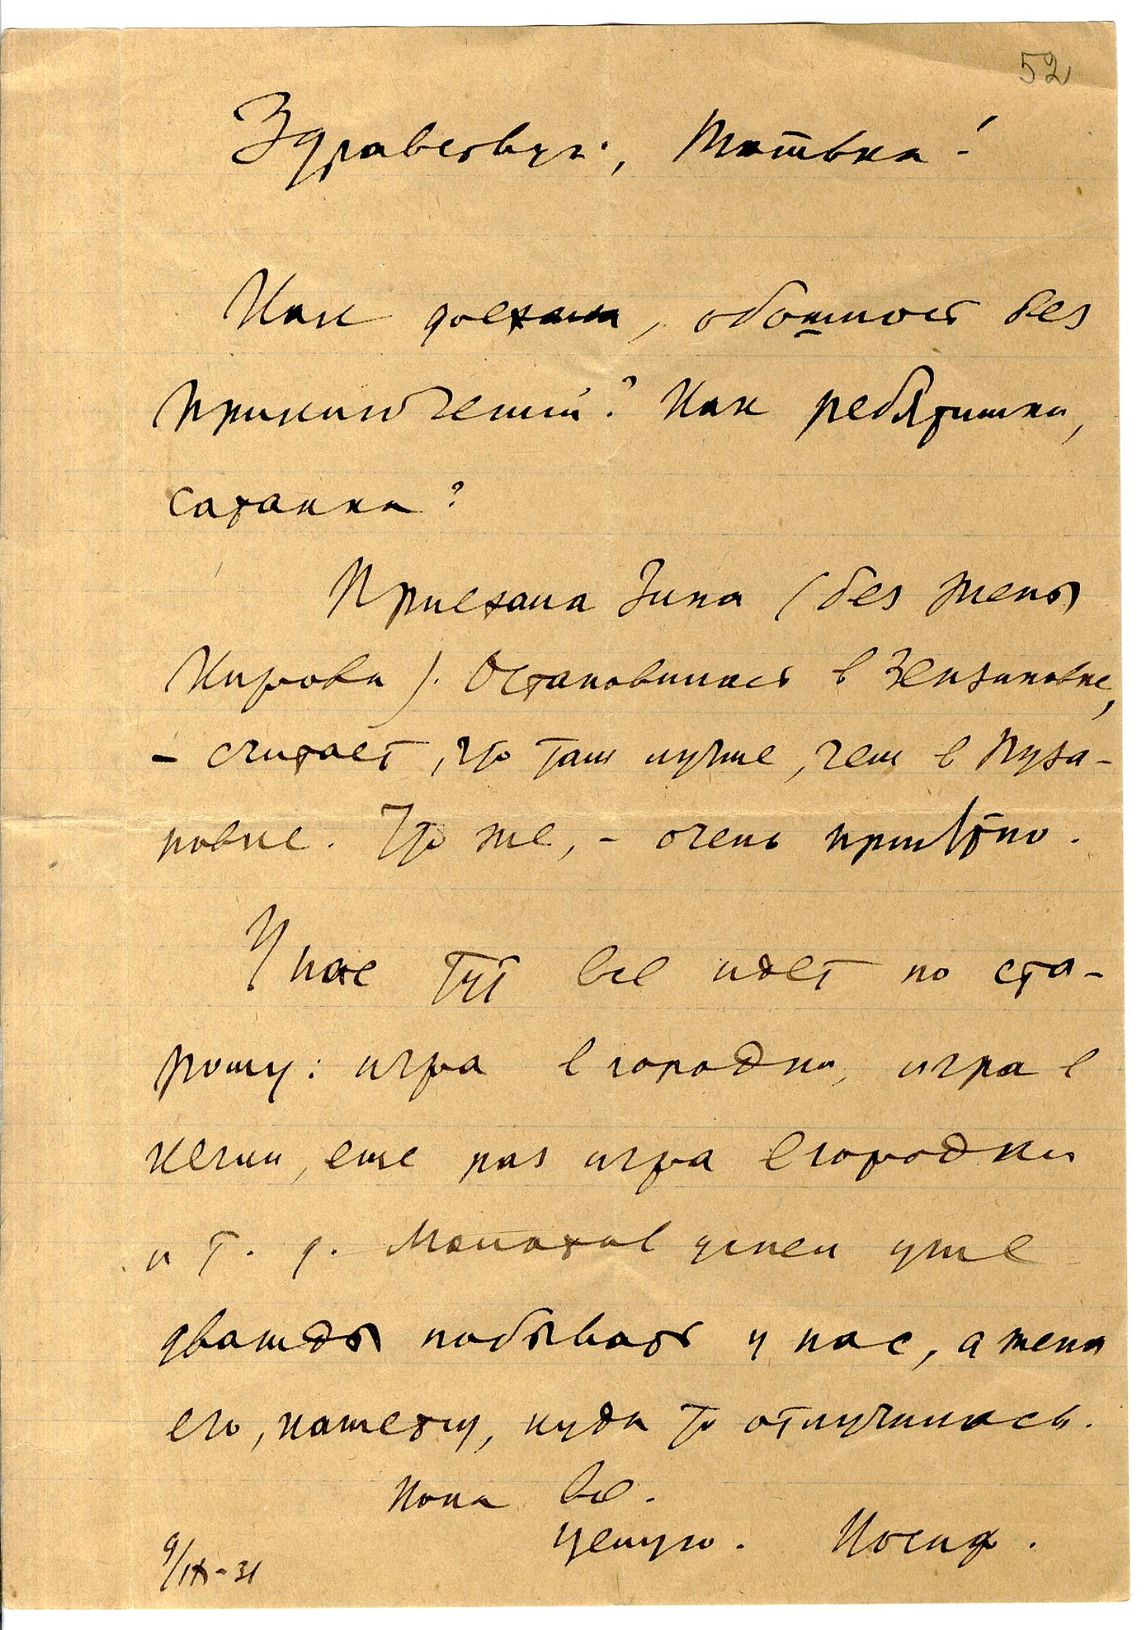 52
Здравствуй, Татька!
Как доехала, обошлось без
приключений? Как ребятишки,
сатанка?
Приехала Зина (без жены
Кирова). Остановилась в Зензиновке,
– считает, что там лучше, чем в Пуза-
новке. Что же, – очень приятно.
У нас тут все идет по ста-
рому: игра в городки, игра в
кегли, еще раз игра в городки
и т. д. Молотов успел уже
дважды побывать у нас, а жена
его, кажется, куда то отлучилась.
Пока все.
Целую. Иосиф.
9/IX-31